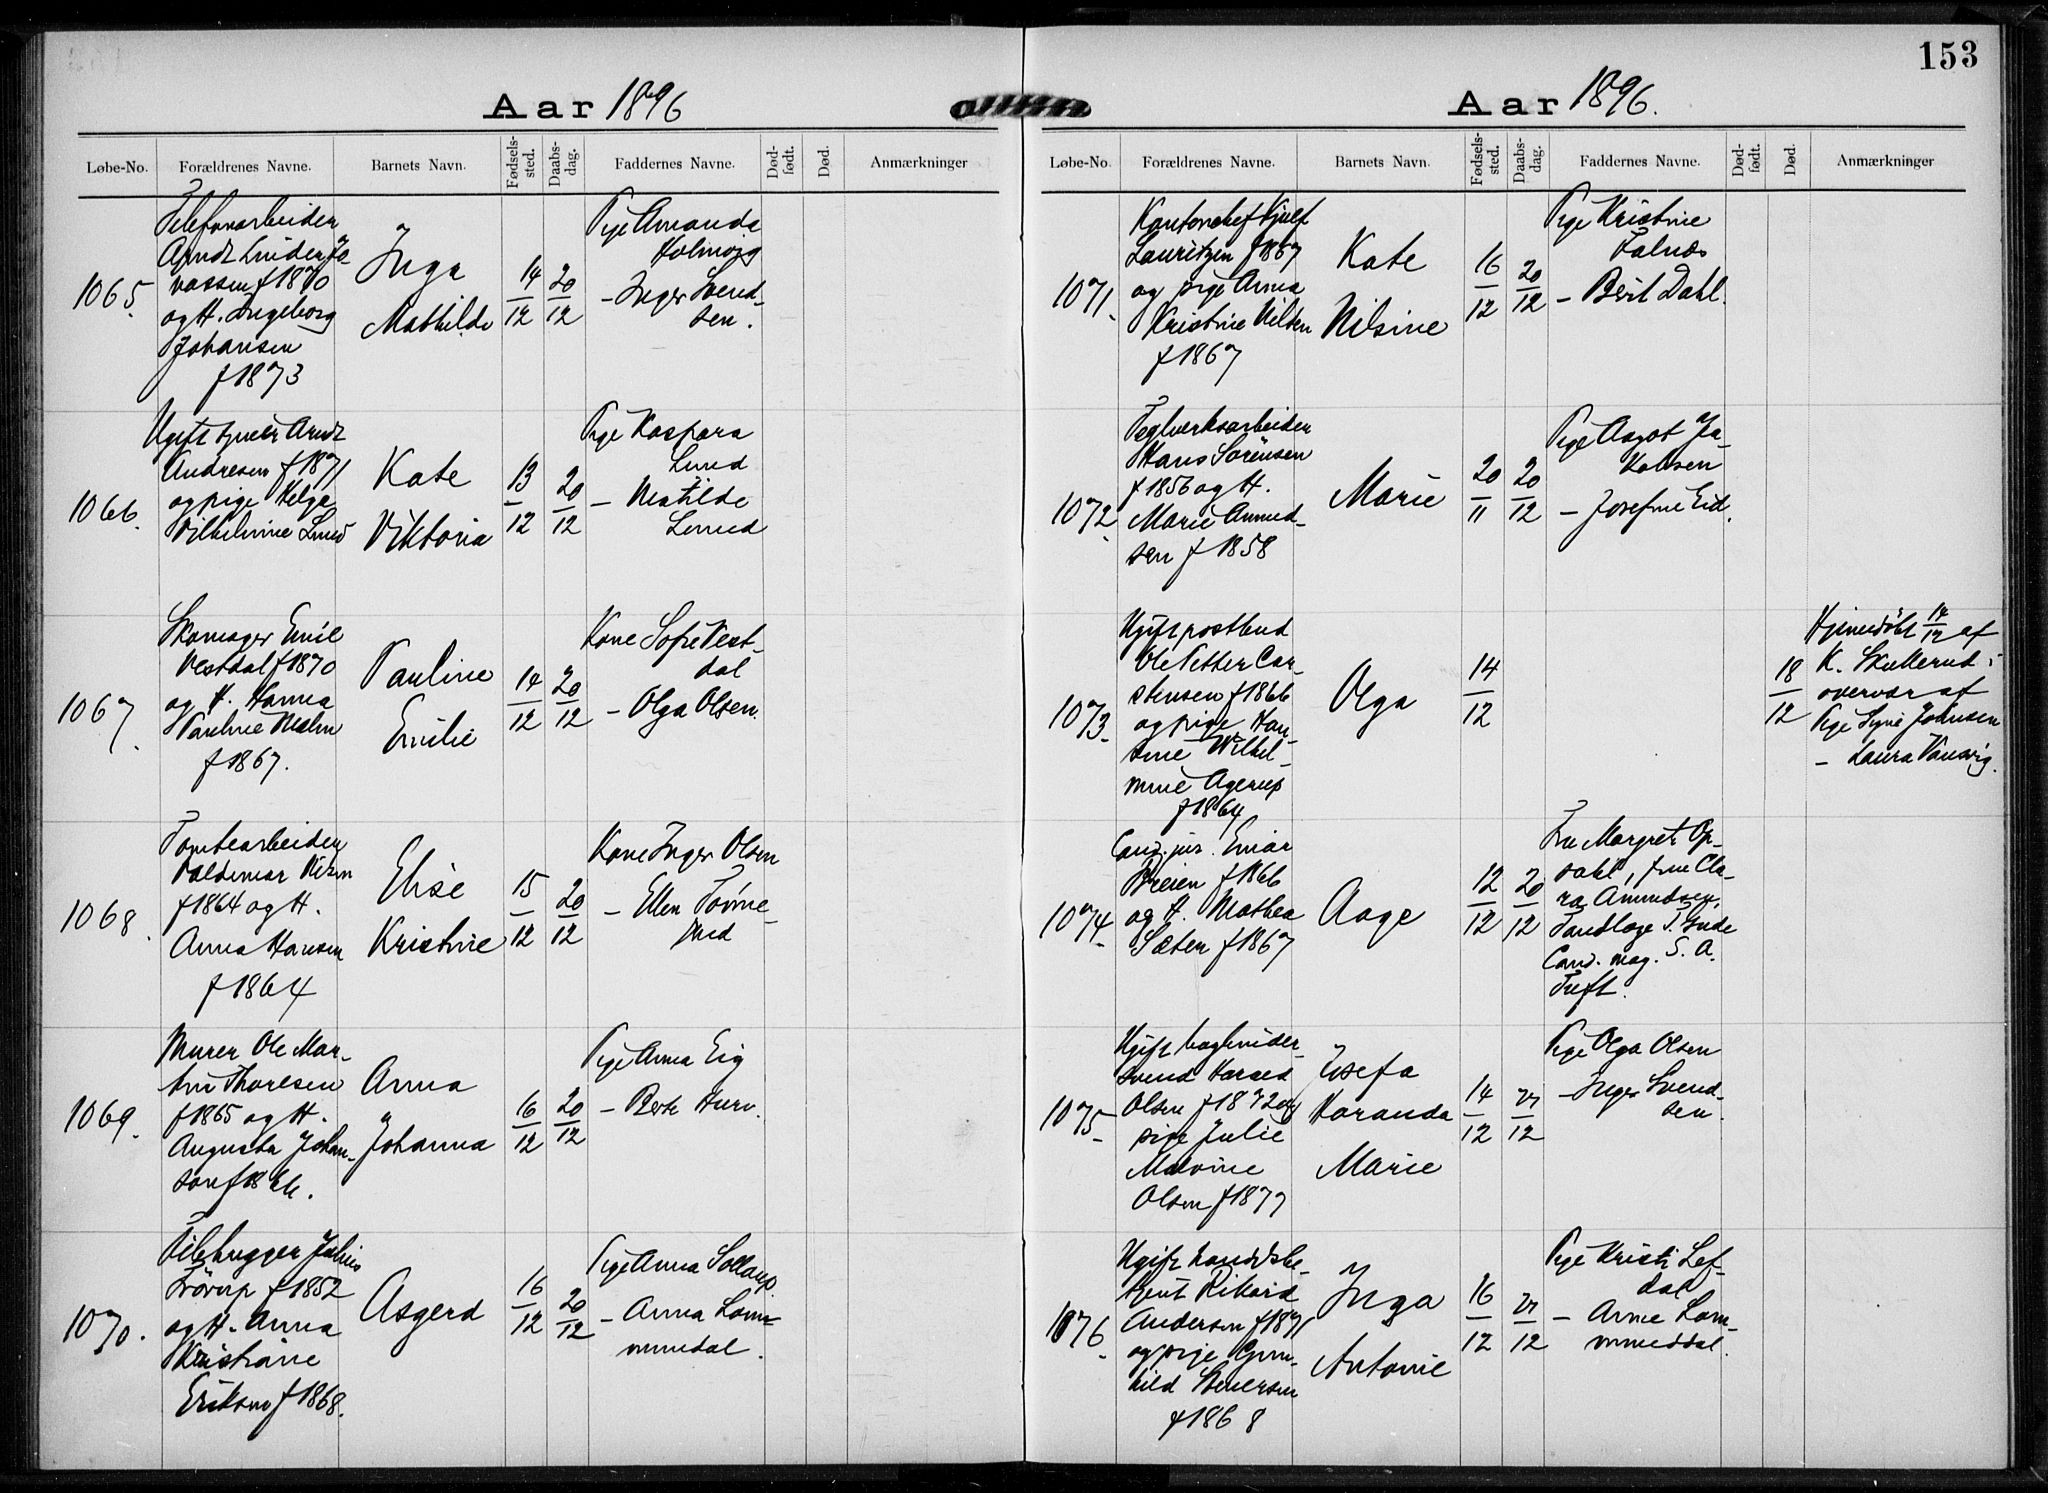 153
Aar 1896
Løbe-No. Forældrenes Navne. Barnets Navn. Fødsels-sted. Daabs-dag. Faddernes Navne. Død-født. Død. Anmærkninger
1065.
Telefonarbeider
Arndt Linder Jo-
nassen f 1870
og H. Ingeborg
Johansen
f 1873
Inga
Mathilde
14/12
20/12
Pige Amanda
Holmvig
– Inger Svend-
sen.
1066.
Ugift tjener Arndt
Andresen f 1871
og pige Helga
Vilhelmine Lund
Kate
Viktoria
13/12
20/12
Pige Kaspara
Lund
– Matilde
Lund
1067.
Skomager Emil
Vestdal f 1870
og H. Hanna
Pauline Malm
f 1867.
Pauline
Emilie
14/12
20/12
Kone Sofie Vest-
dal
– Olga Olsen.
1068.
Tomtearbeider
Valdemar Olsen
f 1864 og H.
Anna Hansen
f 1864
Elise
Kristine
15/12
20/12
Kone Inger Olsen
– Ellen
1069.
Murer Ole Mar-
tin Thoresen
f 1865 og H.
Augusta Johan-
son f 1866.
Anna
Johanna
16/12
20/12
Pige Anna Eig
– Berte
1070.
Filehugger Julius
f 1852
og H. Anna
Kristiane
Eriksen f 1868.
Asgerd
16/12
20/12
Pige Anna
– Anna Lom-
mmedal.
Aar 1896.
Løbe-No. Forældrenes Navne. Barnets Navn. Fødsels-sted. Daabs-dag. Faddernes Navne. Død-født. Død. Anmærkninger
1071.
Kontorchef
Lauritzen f 1867
og pige Anna
Kristine Nilsen
f 1867
Kate
Nilsine
16/12
20/12
Pige Kristine
Falnæs
– Berit Dahl.
1072.
Teglverksarbeider
Hans Sörensen
f 1856 og H.
Marie Amund-
sen f 1858
Marie
20/11
20/12
Pige Aagot Ja-
kobsen
– Josefine Eid.
1073.
Ugift postbud
Ole Petter Car-
stensen f 1866
og pige Han-
sine Wilhel-
mine Agerup
f 1864
Olga
14/12
18/12
Hjemedöbt 14/12 af
K. Skullerud i
overvær af
Pige Signe Johnsen
– Laura Vansvig.
1074.
Cand. jur. Einar
Breien f 1866
og H. Mathea
Sæter f 1867
Aage
12/12
20/12
Fru Margret Op-
sahl, frue Cla-
ra Amundsen,
Tandlæge T. Gude
Cand. mag. S. A.
Tuft.
1075.
Ugift bogbinder-
svend Harald
Olsen f 1872 og
pige Julie
Malvine
Olsen f 1877
Josefa
Haranda
Marie
14/12
21/12
Pige Olga Olsen
– Inger Svend-
sen.
1076.
Ugift handelsbe-
tjent Rikard
Andersen f 1871
og pige Gun-
hild Siversen
f 1868
Inga
Antonie
16/12
21/12
Pige Kristi Lef-
dal
– Anne Lom-
mmeddal.